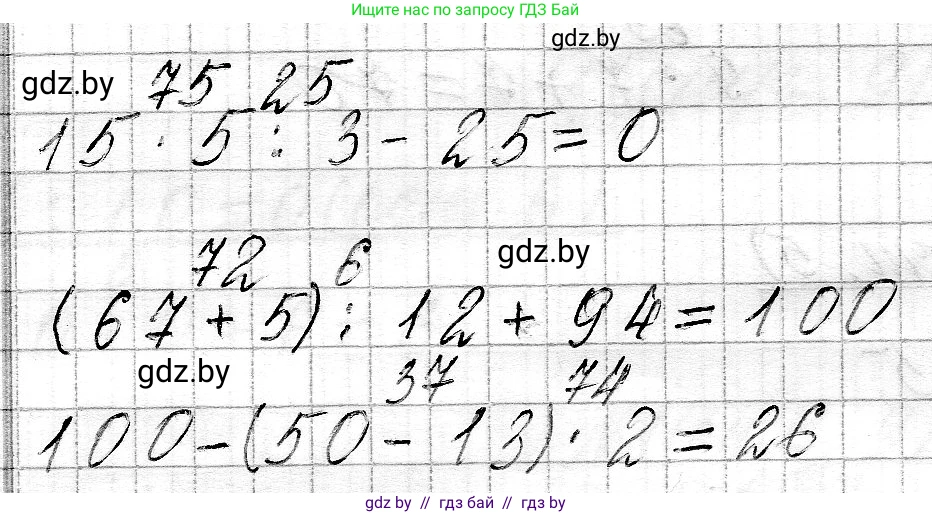 Ищите нас по запросу ГДЗ Бай
gdz.by
gdz.by 75 25
15 · 5 : 3 - 25 = 0
72 6 gdz.by
(67 + 5) : 12 + 94 = 100
gdz.by 37 74
100 - (50 - 13) · 2 = 26
gdz.by // гдз бай // гдз by